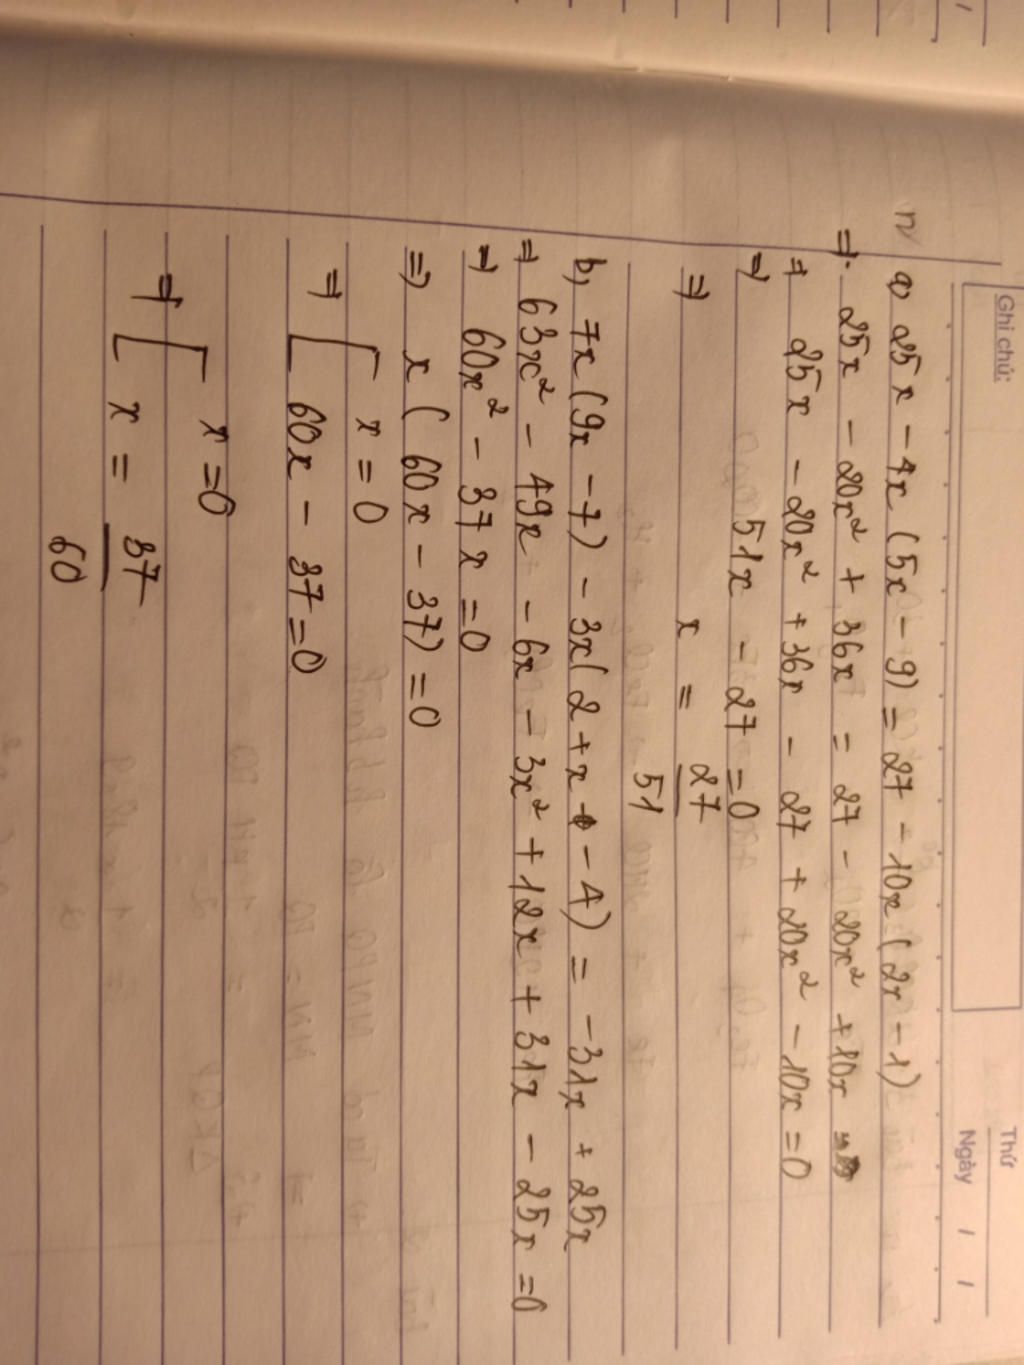 Ghi chú:
Thứ
Ngày / /
a, 25x - 4x (5x - 9) = 27 - 10x (2x - 1)
=> 25x - 20x² + 36x = 27 - 20x² + 10x
=> 25x - 20x² + 36x - 27 + 20x² - 10x = 0
=> 51x - 27 = 0
=> x = 27/51
b, 7x (9x - 7) - 3x (2 + x - 4) = -31x + 25x
=> 63x² - 49x - 6x - 3x² + 12x + 31x - 25x = 0
=> 60x² - 37x = 0
=> x (60x - 37) = 0
=> [ x = 0
60x - 37 = 0
=> [ x = 0
x = 37/60